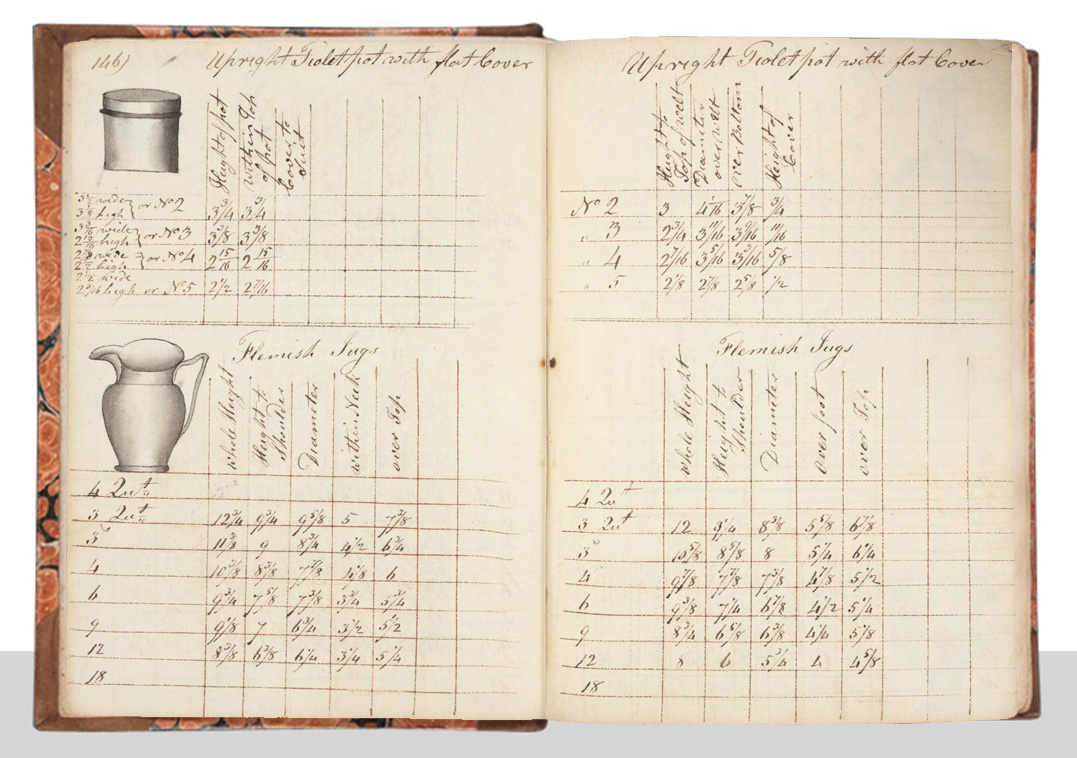 146)
Upright Toiletpot with flat Cover
Height of pot
within Top of pot
Cover to suit
wide
3 3/8 high } or No 2 3 3/4 3 3/4
wide
high } or No 3 3 3/8 3 3/8
wide
high } or No 4 2 15/16 2 15/16
2 1/2 wide
high or No 5 2 1/2 2 7/16
Flemish Jugs
whole Height
Height to Shoulder
Diameter
within Neck
over Top
4 Qut
3 Qut 12 3/4 9 3/4 9 5/8 5 7 3/8
3 11 3/8 9 8 3/4 4 1/2 6 3/4
4 10 3/8 8 3/8 7 7/8 4 1/8 6
6 9 3/4 7 5/8 7 3/8 3 3/4 5 3/4
9 9 1/8 7 6 3/4 3 1/2 5 1/2
12 8 3/8 6 3/8 6 1/4 3 1/4 5 1/4
18
Upright Toiletpot with flat Cover
Height to Top of welt
Diameter over welt
over Bottom
Height of Cover
No 2 3 4 1/16 3 7/8 3/4
" 3 2 3/4 3 11/16 3 9/16 11/16
" 4 2 7/16 3 5/16 3 3/16 5/8
" 5 2 1/8 2 7/8 2 5/8 1/2
Flemish Jugs
whole Height
Height to Shoulder
Diameter
over foot
over Top
4 Qut
3 Qut 12 9 1/4 8 3/8 5 5/8 6 7/8
3 10 5/8 8 5/8 8 5 1/4 6 1/4
4 9 7/8 7 7/8 7 3/8 4 7/8 5 1/2
6 9 3/8 7 1/4 6 7/8 4 1/2 5 1/4
9 8 3/4 6 5/8 6 3/8 4 1/4 5 1/8
12 8 6 5 3/4 4 4 5/8
18